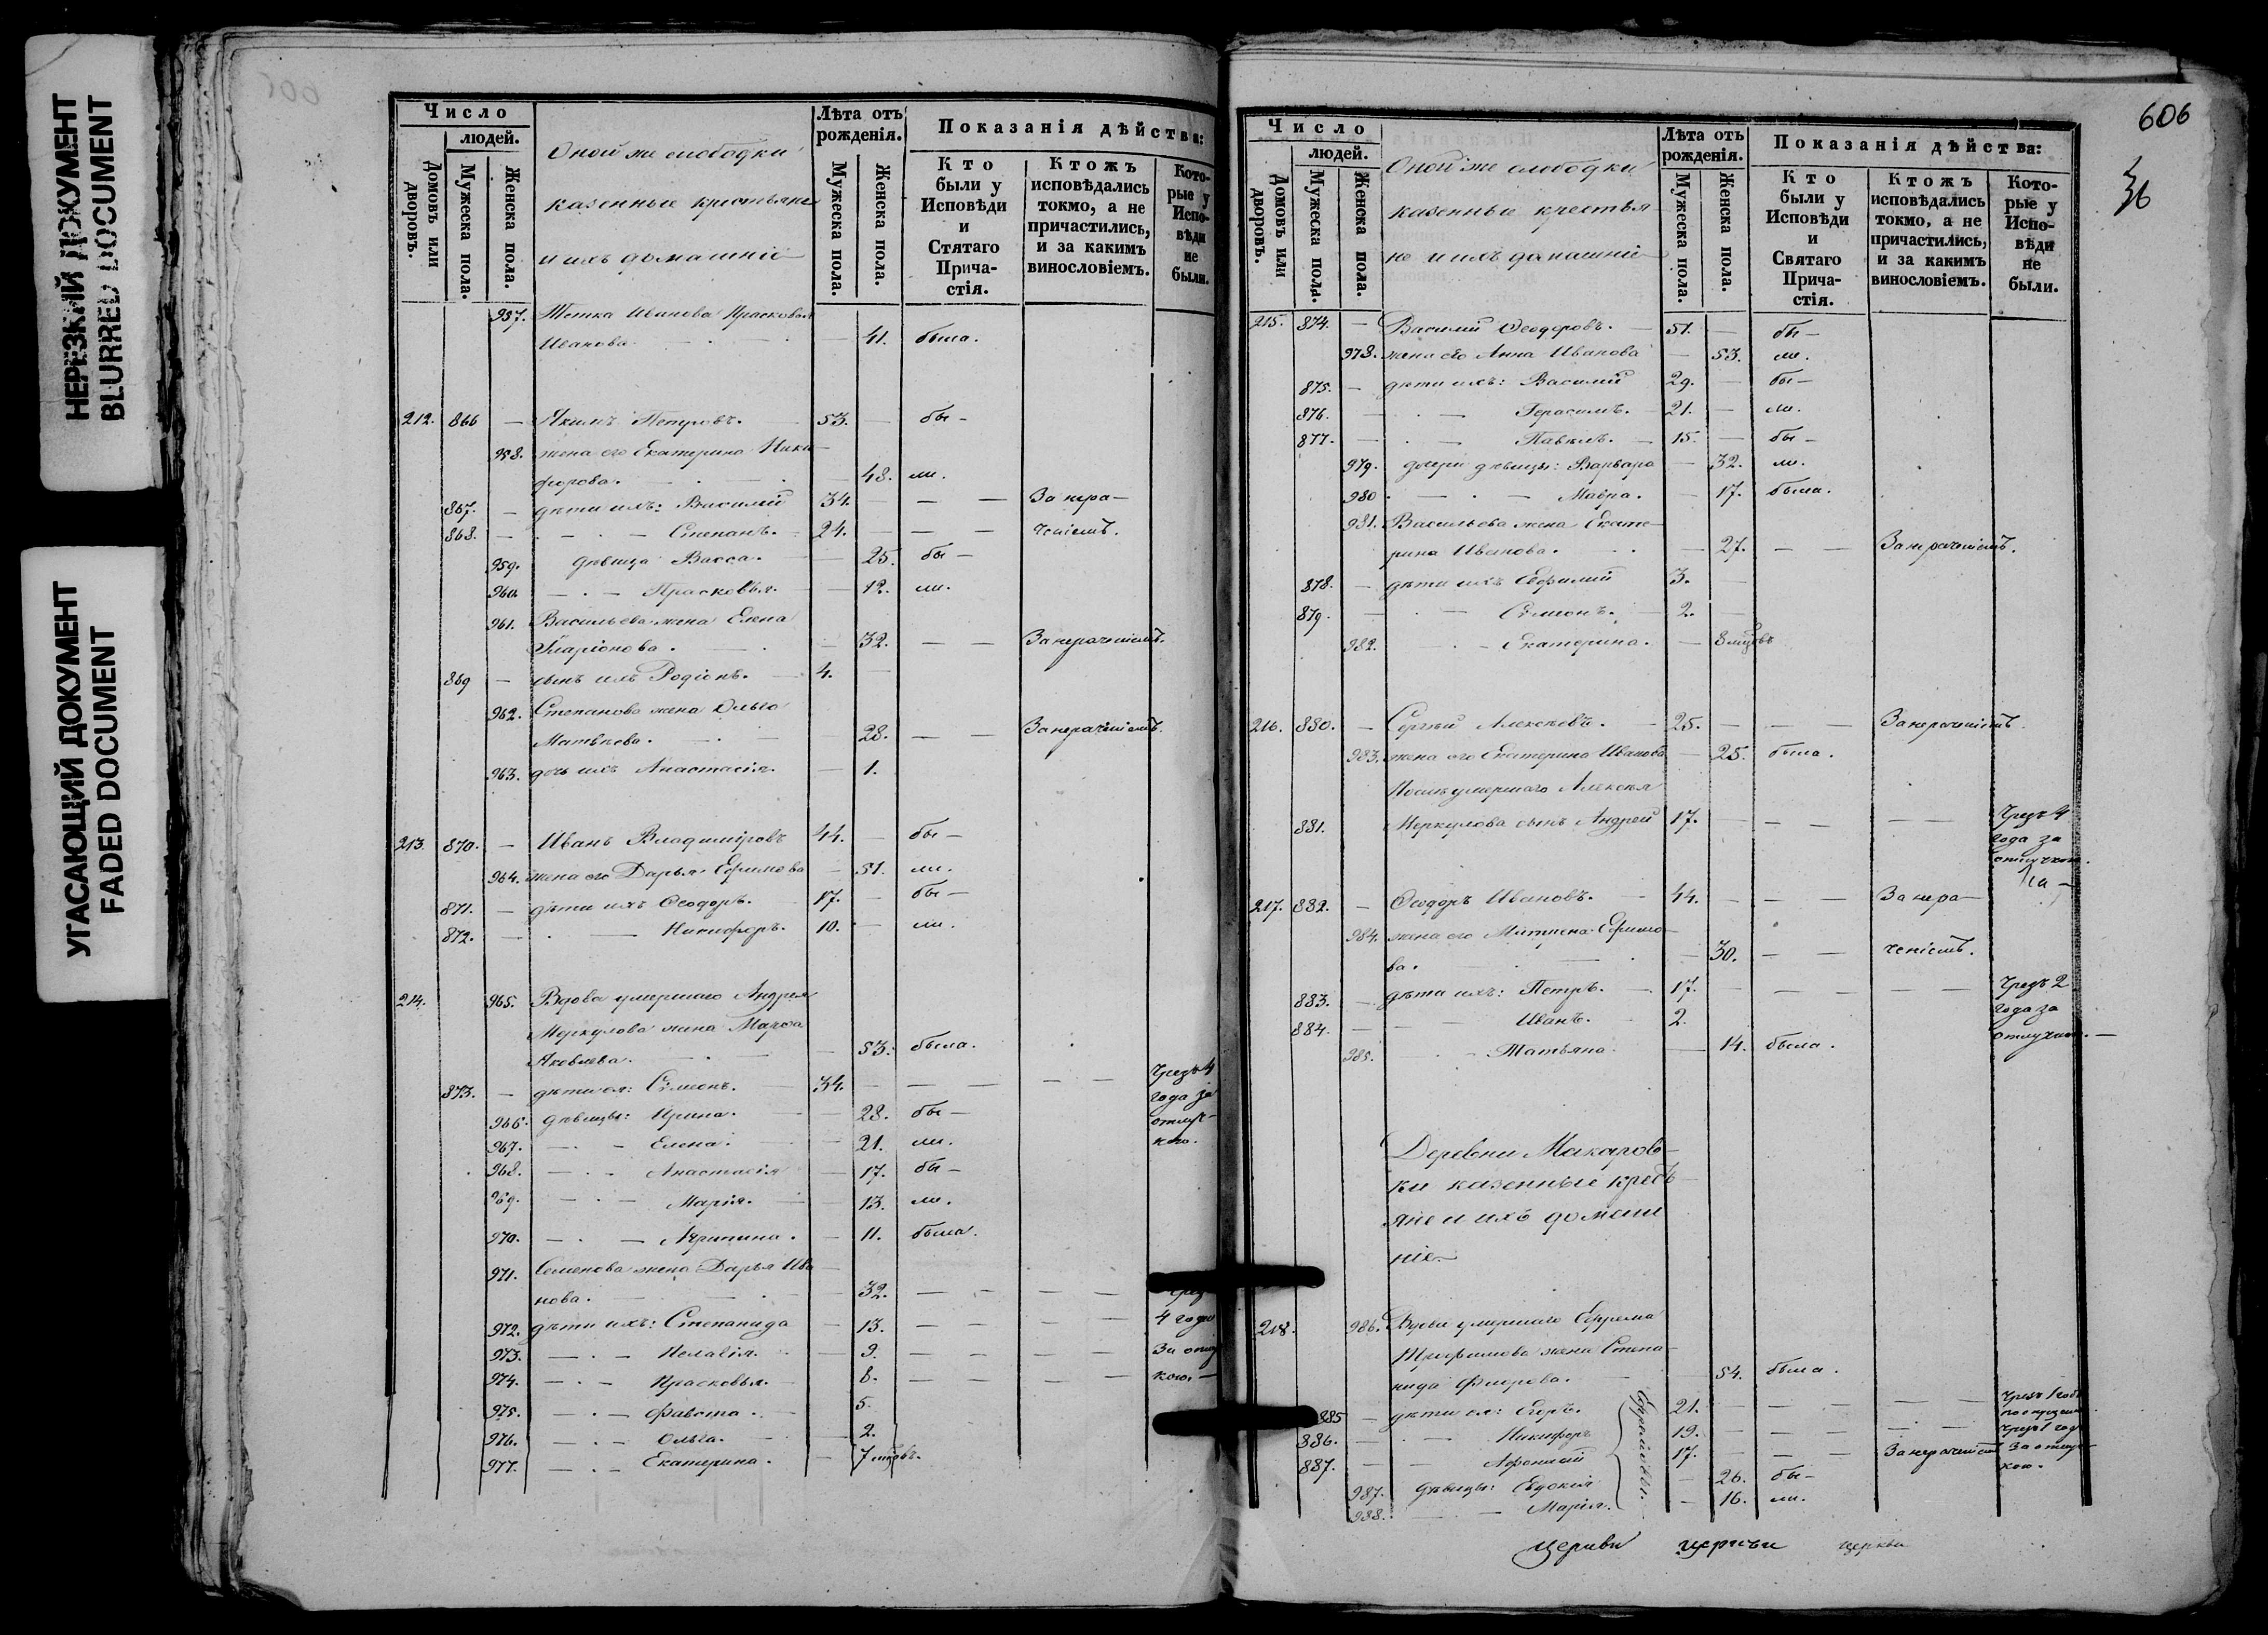 НЕРЕЗКИЙ ДОКУМЕНТ
BLURRED DOCUMENT
УГАСАЮЩИЙ ДОКУМЕНТ
FADED DOCUMENT
Число
людей.
Домовъ или дворовъ.
Мужеска пола.
Женска пола.
Оной же слободки
казенные крестьяне
и ихъ домашніе
Лѣта отъ рожденія.
Мужеска пола.
Женска пола.
Показанія дѣйства:
Кто были у Исповѣди и Стятаго Причастія.
Ктожъ исповѣдались токмо, а не причастились, и за какимъ винословіемъ.
Которые у Исповѣди не были.
957. Тетка Иванова Прасковья
Иванова. — 41. была.
212. 866 — Якимъ Петровъ. 53. — бы –
958. жена его Екатерина Ники
форова. — 48. ли.
867. — дѣти ихъ: Василій 34. — — — За нера –
868. — Степанъ. 24. — — — ченіемъ.
959. дѣвица Васса. — 25. бы –
960. — Прасковья. — 12. ли.
961. Васильева жена Елена
Иларіонова. — 32. — — За нераченіемъ.
869 — сынъ ихъ Родіонъ. 4. —
962. Степанова жена Ольга
Матвѣева. — 28. — — За нераченіемъ.
963. дочь ихъ Анастасія. — 1.
213. 870. — Иванъ Владиміровъ 44. — бы –
964. жена его Дарья Ефимова — 51. ли.
871. — дѣти ихъ Ѳеодоръ. 17. — бы –
872. — Никифоръ. 10. — ли.
214. 965. Вдова умершаго Андрея
Меркулова жена Марѳа
Яковлева. — 53. была.
873. — дѣти ея: Сѵмеонъ. 34. — — — — — Чрезъ 4
года за
966. дѣвицы: Ирина. — 28. бы – отлуч–
967. — Елена. — 21. ли. кою.
968. — Анастасія — 17. бы –
969. — Марія. — 13. ли.
970. — Агрипина. — 11. была.
971. Семенова жена Дарья Ива
нова. — 32. — — — —
972. дѣти ихъ: Степанида — 13. — — — — 4 года
973. — Пелагія. — 9. — — — — За отлу
974. — Прасковья. — 8. — — — — кою. –
975. — Фавста. 5.
976. — Ольга. 2.
977. — Екатерина. — 7 мцовъ.
606
36
Число
людей.
Домовъ или дворовъ.
Мужеска пола.
Женска пола.
Оной же слободки
казенные крестья
не и ихъ домашніе
Лѣта отъ рожденія.
Мужеска пола.
Женска пола.
Показанія дѣйства:
Кто были у Исповѣди и Святаго Причастія.
Ктожъ исповѣдались токмо, а не причастились, и за какимъ винословіемъ.
Которые у Исповѣди не были.
215. 874. — Василій Ѳеодоровъ. — 51. — бы –
978. жена его Анна Иванова — 53. ли.
875. — дѣти ихъ: Василій 29. — бы –
876. — Герасимъ. 21. — ли.
877. — Павелъ. — 15. — бы –
979. дочери дѣвицы: Варвара — 32. ли.
980 — Мавра. — 17. была.
981. Васильева жена Екате–
рина Иванова. — 27. — — За нераченіемъ.
878. — дѣти ихъ Евфимій 3. —
879. — Сѵмеонъ. — 2. —
982. — Екатерина. — 8 мцовъ
216. 880. — Сергѣй Алексѣевъ. — 25. — — — За нераченіемъ.
983. жена его Екатерина Иванова — 25. была.
Послѣ умершаго Алексѣя
881. Меркулова сынъ Андрей 17. — — — — — Чрезъ 4
года за
отлучкою.
217. 882. — Ѳеодоръ Ивановъ. — 44. — — — За нера –
984. жена его Матрена Ефимо–
ва. — 30. — — ченіемъ.
883. — дѣти ихъ: Петръ. — 17. — — — — — Чрезъ 2
884. — Иванъ. 2. года за
985. — Татьяна. — 14. была. отлучкою. —
Деревни Макаров–
ки казенные кресть
яне и ихъ домаш
ніе
218. 986. Вдова умершаго Ефрема
Трофимова жена Степа–
нида Флорова. — 54. была.
885 — дѣти ея: Егоръ. 21. — — — — — Чрезъ 1 годъ
886. — Никифоръ 19. — — — — — Чрезъ 1 годъ
887. — Афанасій 17. — — За нераченіемъ За отлуч–
кою.
Ефремовы.
987. дѣвицы: Евдокія — 26. бы –
988. — Марія. — 16. ли.
церкви церкви церкви